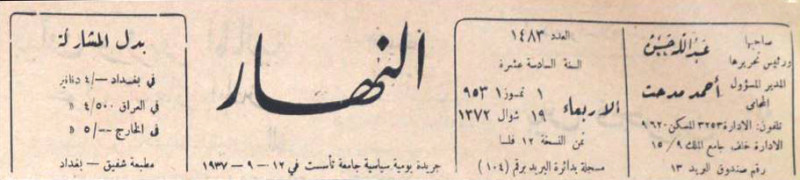 صاحبها
ورئيس تحريرها
عبدالله حسن
المدير المسؤول
المحامي
أحمد مدحت
تلفون: الادارة ٣٢٥٣ المسكن ٩٦٢٠
الادارة خلف جامع الملك ١٥/٩
رقم صندوق البريد ١٣
العدد ١٤٨٣
السنة السادسة عشرة
الاربعاء
١ تموز ١٩٥٣
١٩ شوال ١٣٧٢
ثمن النسخة ١٢ فلسا
مسجلة بدائرة البريد برقم (١٠٤)
النهار
جريدة يومية سياسية جامعة تأسست في ١٢ - ٩ - ١٩٣٧
بدل المشاركة
في بغداد ـ/٤ دنانير
في العراق ٤/٥٠٠ »
في الخارج ـ/٥ »
مطبعة شفيق - بغداد